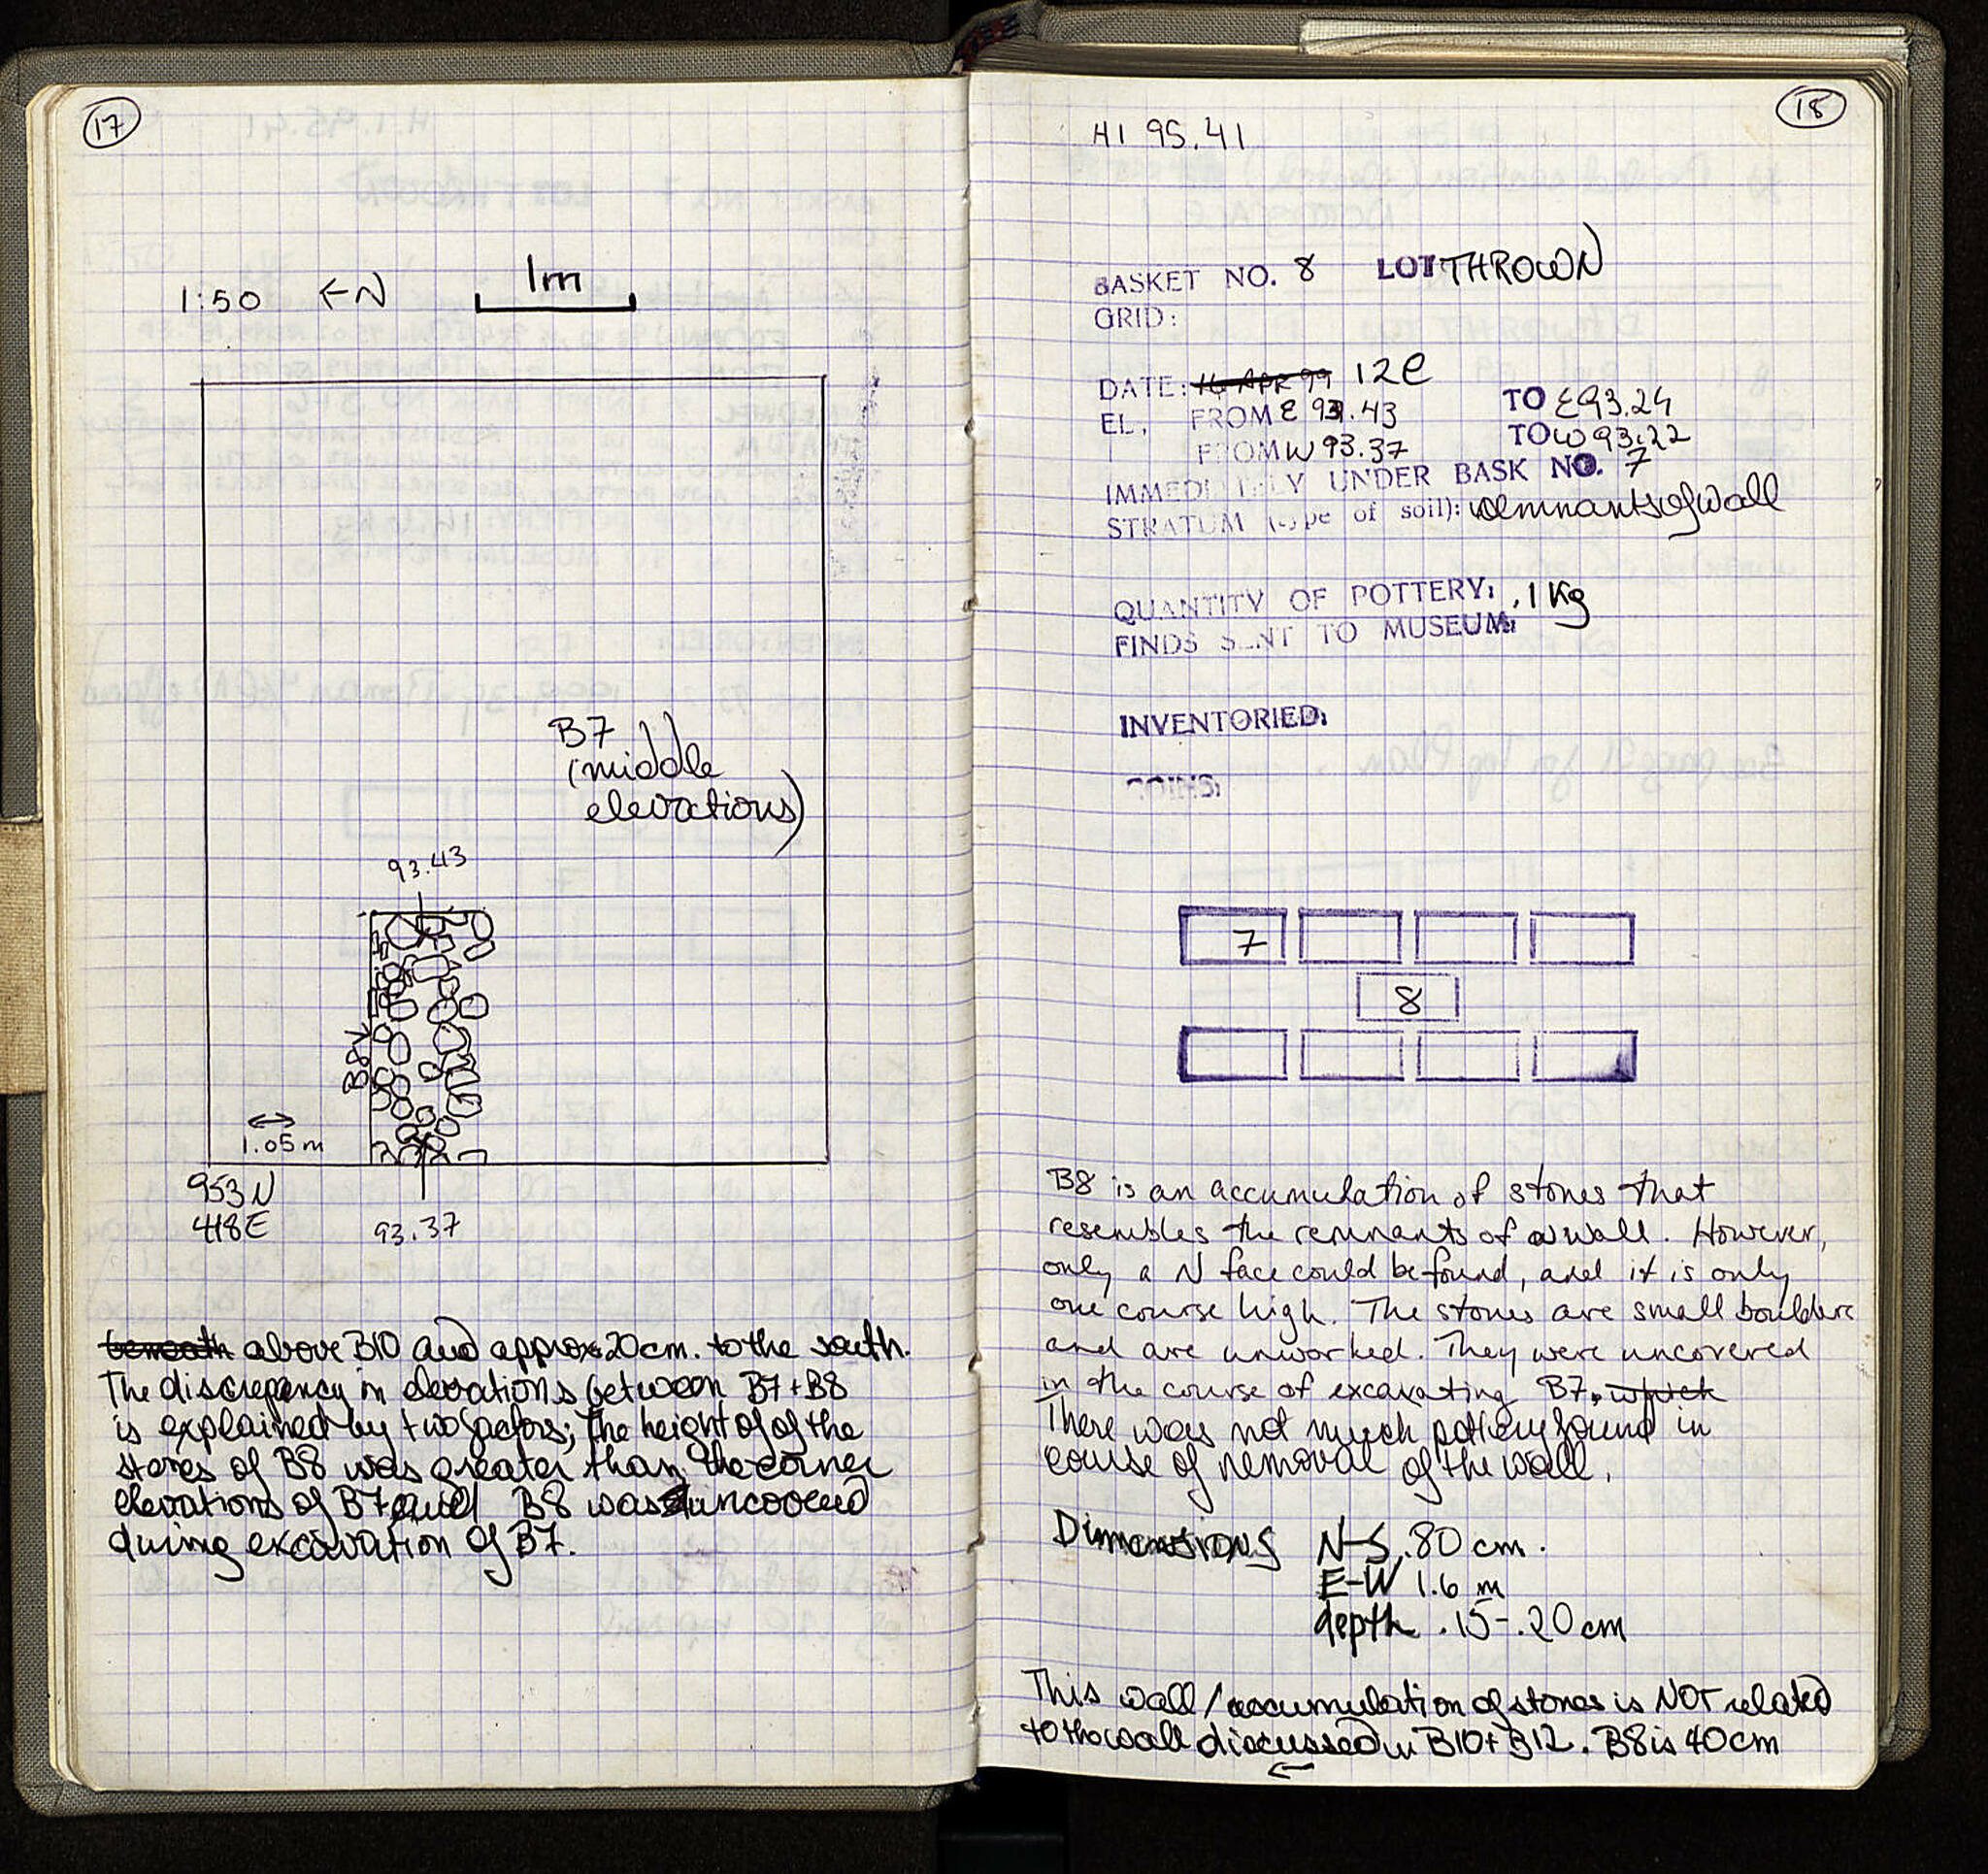 17
1:50 ←N 1m
B7
(middle
elevations)
93.43
B8
1.05m
953N
418E
93.37
beneath above B10 and approx 20cm. to the south.
The discrepancy in elevations between B7+B8
is explained by two factors; the height of of the
stones of B8 was greater than the corner
elevations of B7 and B8 was uncovered
during excavation of B7.
18
H1 95.41
BASKET NO. 8 LOT THROWN
GRID:
DATE: 16 APR 99 12E
EL, FROM E 93.43 TO E93.24
FROM W 93.37 TO W 93.22
IMMEDIATELY UNDER BASK NO. 7
STRATUM (type of soil): remnants of wall
QUANTITY OF POTTERY: .1 Kg
FINDS SENT TO MUSEUM:
INVENTORIED:
COINS:
7
8
B8 is an accumulation of stones that
resembles the remnants of a wall. However,
only a N face could be found, and it is only
one course high. The stones are small boulders
and are unworked. They were uncovered
in the course of excavating B7. which
There was not much pottery found in
course of removal of the wall.
Dimensions N-S .80 cm.
E-W 1.6 m
depth .15-.20 cm
This wall/accumulation of stones is NOT related
to the wall discussed in B10+B12. B8 is 40cm
←